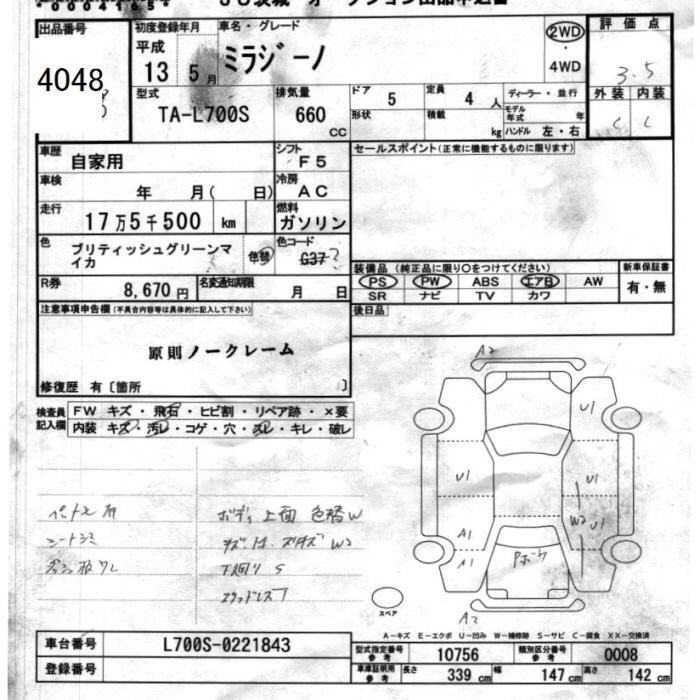 出品番号
4048
初度登録年月
平成
13 5月
車名・グレード
ミラジーノ
2WD
4WD
評価点
3.5
外装 内装
C C
型式
TA-L700S
排気量
660
CC
ドア 5
定員 4 人
形状
積載 kg
ディーラー・並行
モデル年式 年
ハンドル 左・右
車歴
自家用
シフト
F5
セールスポイント(正常に機能するものに限ります)
車検
年 月( 日)
冷房
AC
走行
17万5千500 km
燃料
ガソリン
色
ブリティッシュグリーンマイカ
色替
色コード
G37?
R券
8,670円
名変通知期限
月 日
装備品 (純正品に限り○をつけてください)
PS PW ABS エアB AW
SR ナビ TV カワ
新車保証書
有・無
後日品
注意事項申告欄(不具合内容等は具体的に記入して下さい)
原則ノークレーム
修復歴 有〔箇所 〕
検査員記入欄
FW キズ・飛石・ヒビ割・リペア跡・×要
内装 キズ・汚レ・コゲ・穴・スレ・キレ・破レ
A2
U1
U1 U1
W2 U1
A1
A1
A2
シートシミ
ボディ上面 色褪W
下廻りS
スペア
A-キズ E-エクボ U-凹み W-補修跡 S-サビ C-腐食 XX-交換済
車台番号
L700S-0221843
登録番号
型式指定番号 参考
10756
類別区分番号 参考
0008
車庫証明用 参考
長さ 339 cm
幅 147 cm
高さ 142 cm